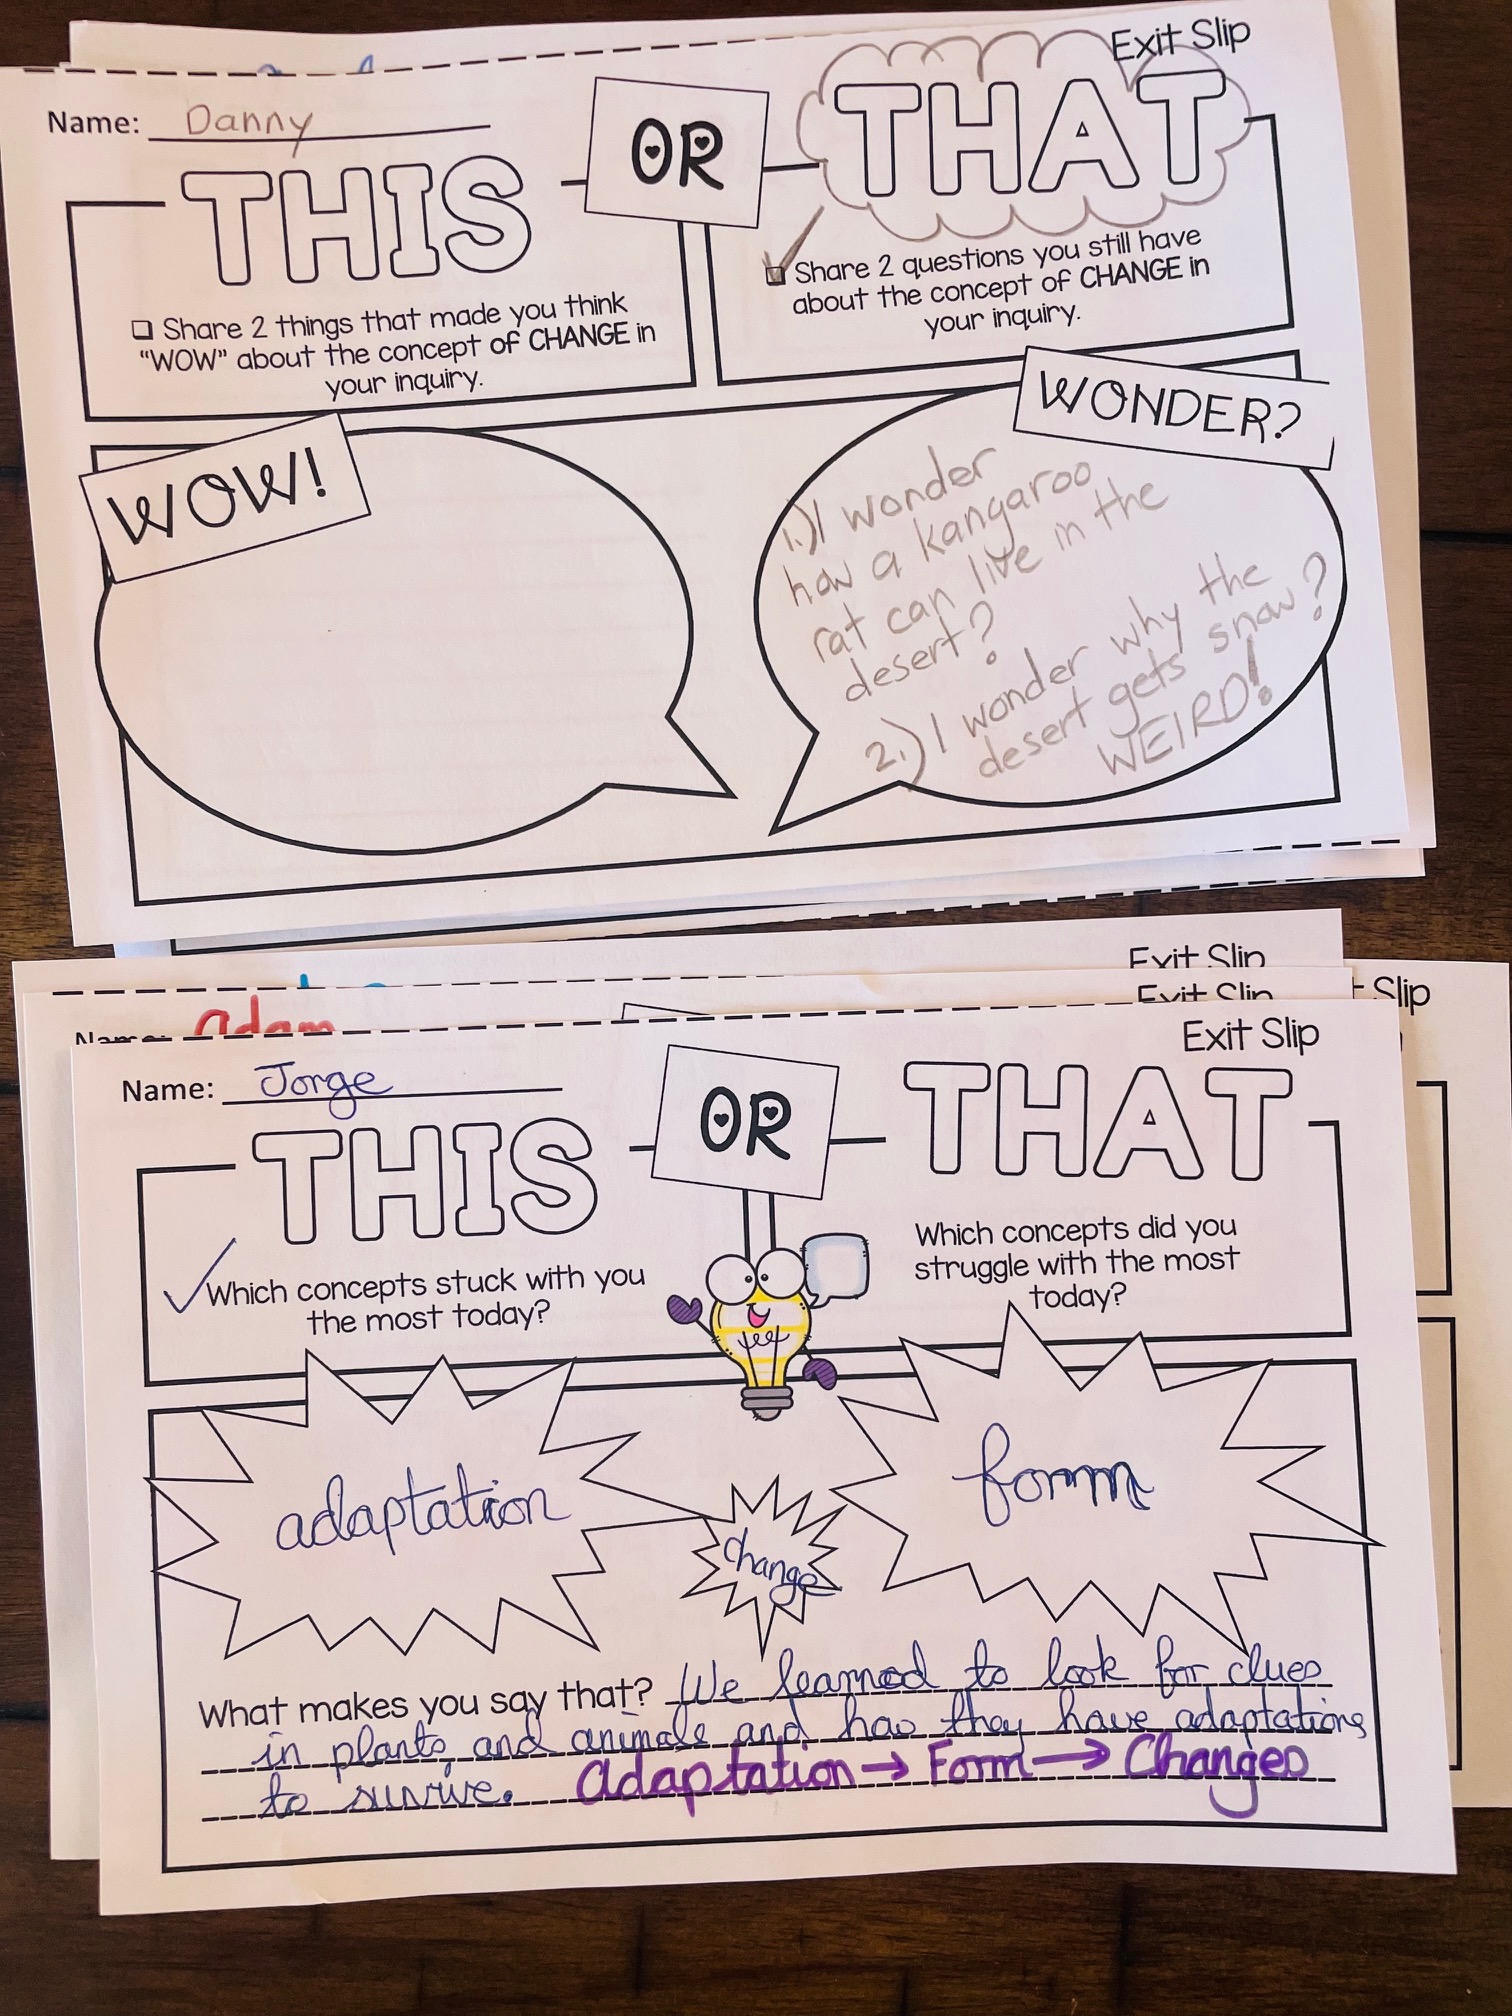 Exit Slip
Name: Danny
THIS
OR
THAT
Share 2 things that made you think
"WOW" about the concept of CHANGE in
your inquiry.
Share 2 questions you still have
about the concept of CHANGE in
your inquiry.
WOW!
WONDER?
1.) I wonder
how a kangaroo
rat can live in the
desert?
2.) I wonder why the
desert gets snow?
WEIRD!
Exit Slip
Exit Slip
Slip
Name: Adam
Exit Slip
Name: Jorge
THIS
OR
THAT
Which concepts stuck with you
the most today?
Which concepts did you
struggle with the most
today?
adaptation
change
form
What makes you say that? We learned to look for clues
in plants and animals and how they have adaptations
to survive. Adaptation → Form → Changes